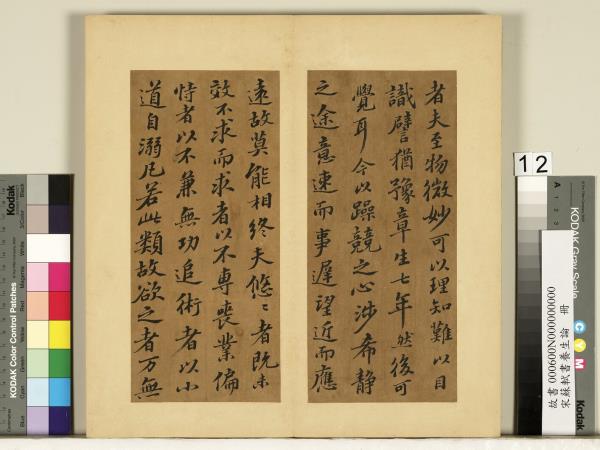 者夫至物微妙可以理知難以目
識譬猶豫章生七年然後可
覺耳今以躁競之心涉希靜
之途意速而事遲望近而應
遠故莫能相終夫悠〻者既未
效不求而求者以不專喪業偏
恃者以不兼無功追術者以小
道自溺凡若此類故欲之者万無
12
A 1 2 3
KODAK Gray Scale
C Y M
Kodak
故書 000600N000000000
宋蘇軾書養生論 冊
Kodak
KODAK Color Control Patches
Blue
Cyan
Green
Yellow
Red
Magenta
White
3/Color
Black